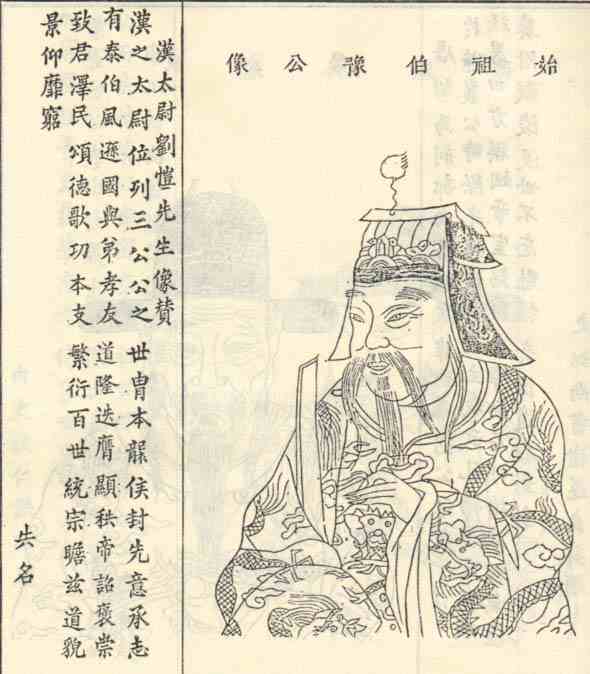 始祖伯豫公像
漢太尉劉愷先生像贊
漢之太尉位列三公公之世冑本龍侯封先意承志
有泰伯風遜國與弟孝友道隆迭膺顯秩帝詔褒崇
致君澤民頌德歌功本支繁衍百世統宗瞻茲道貌
景仰靡窮
失名